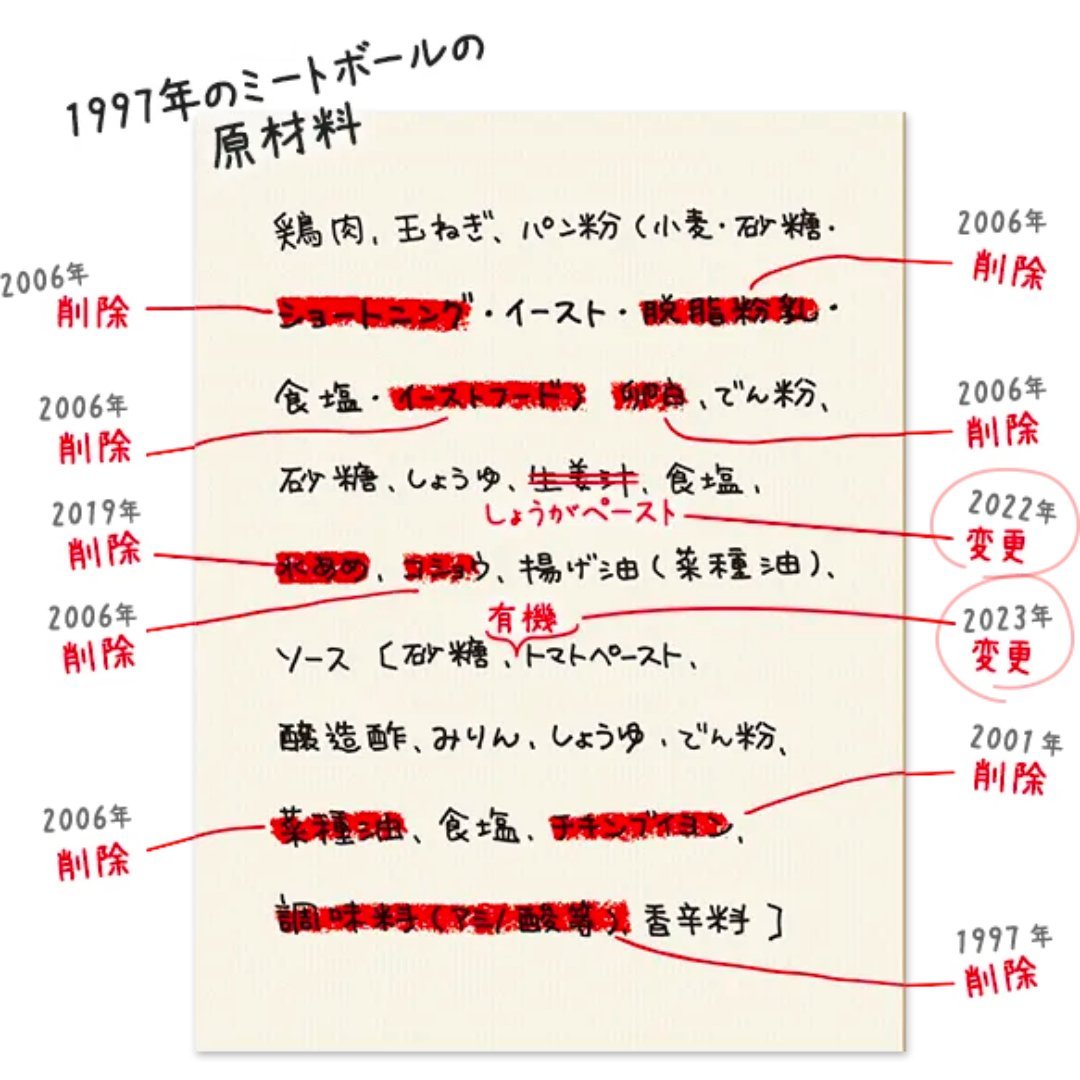 1997年のミートボールの
原材料
鶏肉、玉ねぎ、パン粉（小麦・砂糖・
2006年
削除
2006年
削除
ショートニング・イースト・脱脂粉乳・
食塩・イーストフード） 卵白、でん粉、
2006年
削除
2006年
削除
砂糖、しょうゆ、生姜汁、食塩、
しょうがペースト
2022年
変更
2019年
削除
水あめ、コショウ、揚げ油（菜種油）、
2006年
削除
有機
2023年
変更
ソース〔砂糖、トマトペースト、
醸造酢、みりん、しょうゆ、でん粉、
2001年
削除
2006年
削除
菜種油、食塩、チキンブイヨン、
調味料（アミノ酸等）、香辛料］
1997年
削除